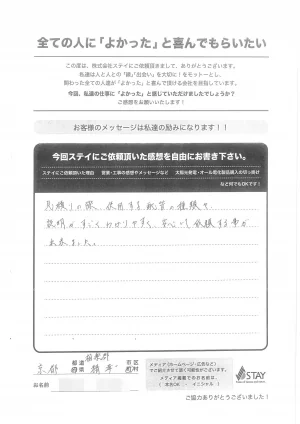 全ての人に「よかった」と喜んでもらいたい
この度は、株式会社ステイにご依頼頂きまして、ありがとうございます。
私達は人と人との「縁」「出会い」を大切に！をモットーとし、
関わった全ての人達が「よかった」と喜んで頂ける会社を目指しています。
今回、私達の仕事に「よかった」と感じていただけましたでしょうか？
ご感想をお願いいたします！
お客様のメッセージは私達の励みになります！！
今回ステイにご依頼頂いた感想を自由にお書き下さい。
ステイにご依頼頂いた理由 営業・工事の感想やメッセージなど 太陽光発電・オール電化製品購入の切っ掛け
など何でもOKです！
見積りの際、使用する 種類や
説明がすごくわかりやすく、安心して依頼する事が
出来ました。
京都 都道府県 相楽郡 精華 市区町村
お名前
メディア（ホームページ・広告など）
でご紹介させて頂く可能性がございます。
メディア掲載でのお名前は、
（ 本名OK ・ イニシャル ）
STAY
ご協力ありがとうございました！